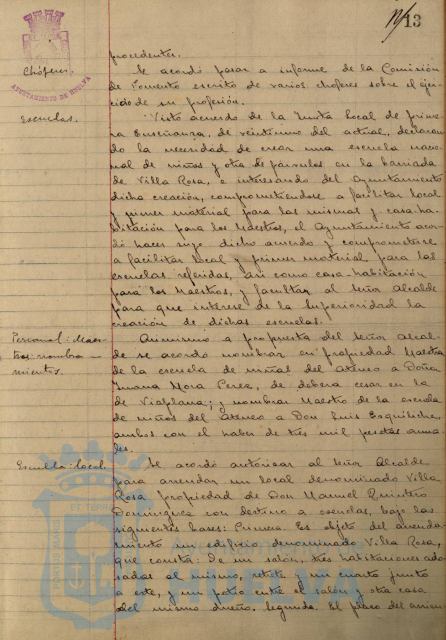 13
procedentes.
Chóferes.
Se acordó pasar a informe de la Comisión
de Fomento escrito de varios choferes sobre el ejer-
cicio de su profesión.
AYUNTAMIENTO DE HUELVA
Escuelas.
Visto acuerdo de la Junta local de prime-
ra Enseñanza, de veintiuno del actual, declaran-
do la necesidad de crear una escuela nacio-
nal de niños y otra de párvulos en la barriada
de Villa Rosa, e interesando del Ayuntamiento
dicha creación, comprometiéndose a facilitar local
y primer material para las mismas y casa-ha-
bitación para los Maestros, el Ayuntamiento acor-
dó hacer suyo dicho acuerdo y comprometerse
a facilitar local y primer material para las
escuelas referidas, así como casa-habitación
para los Maestros, y facultar al Señor Alcalde
para que interese de la Superioridad la
creación de dichas escuelas.
Personal: Maes-
tros: nombra-
mientos.
Asimismo a propuesta del Señor Alcal-
de se acordó nombrar en propiedad Maestra
de la escuela de niñas del Ateneo a Doña
Juana Mora Cerea, de deberá cesar en la
de Vialplana; y nombrar Maestro de la escuela
de niños del Ateneo a Don Luis Esquiliche,
ambos con el haber de tres mil pesetas anua-
les.
Escuela: local.
Se acordó autorizar al Señor Alcalde
para arrendar un local denominado Villa
Rosa propiedad de Don Manuel Quintero
Domínguez con destino a escuelas, bajo las
siguientes bases: Primera. Es objeto del arrenda-
miento un edificio denominado Villa Rosa,
que consta: De un salón, tres habitaciones ado-
sadas al mismo, retrete y un cuarto junto
a este, y un patio entre el salón y otra casa
del mismo dueño. Segunda. El plazo del arren-